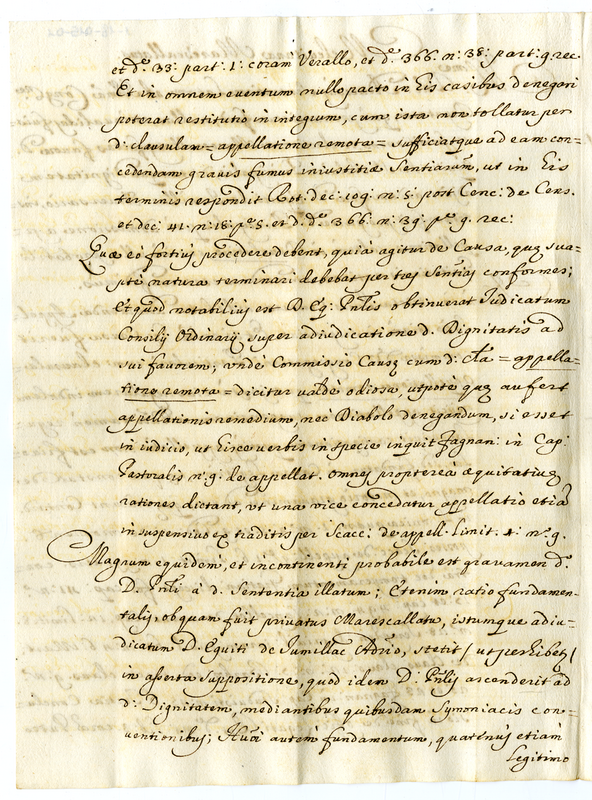 et d.º 33. part: 1.ª coram Verallo, et d.º 366. n.º 38: part: 9. rec.
Et in omnem eventum nullo pacto in Eis casibus denegari
poterat restitutio in integrum, cum ista non tollatur per
d: clausulam = appellatione remota = sufficiatque ad eam con=
cedendam gravis fumus iniustitiæ Sentiarum, ut in Eis
terminis respondit Rot: dec: 109: n: 5: post Cenc: de Cens.
et dec: 41. n: 18: p.e 5. et d. d.º 366. n: 39: p.e 9. rec:
Quæ eò fortius procedere debent, quià agitur de Causa, quæ sua=
ptè natura terminari debebat per tres Sentias conformes;
Et quod notabilius est D. Eq: Pntis obtinuerat Iudicatum
Consilij Ordinarij super adiudicatione d. Dignitatis ad
sui favorem; undè Commissio Causæ cum d: cla = appella=
tione remota = dicitur valdè odiosa, utpotè quæ aufert
appellationis remedium, nec Diabolo denegandum, si esset
in iudicio, ut Eisce verbis in specie inquit Fagnan: in Cap:
Pastoralis n: 9. de appellat. Omnes proptereà æquitatiuæ
rationes dictant, vt una vice concedatur appellatio etiã
in suspensiuo ex traditis per Scacc: de appell: Limit. 4: n.º 9.
Magnum equidem, et incontinenti probabile est gravamen d.º
D. Pnti à d. Sententia illatum; Etenim ratio fundamen=
talis, ob quam fuit privatus Marescallatu, istumque adiu=
dicatum D. Equiti de Jumillac Adrio, stetit / ut perhibet /
in asserta suppositione, quod idem D: Pntis ascenderit ad
d: Dignitatem, mediantibus quibusdam Symoniacis con=
ventionibus; Huoi autem fundamentum, quatenus etiam
Legitimo